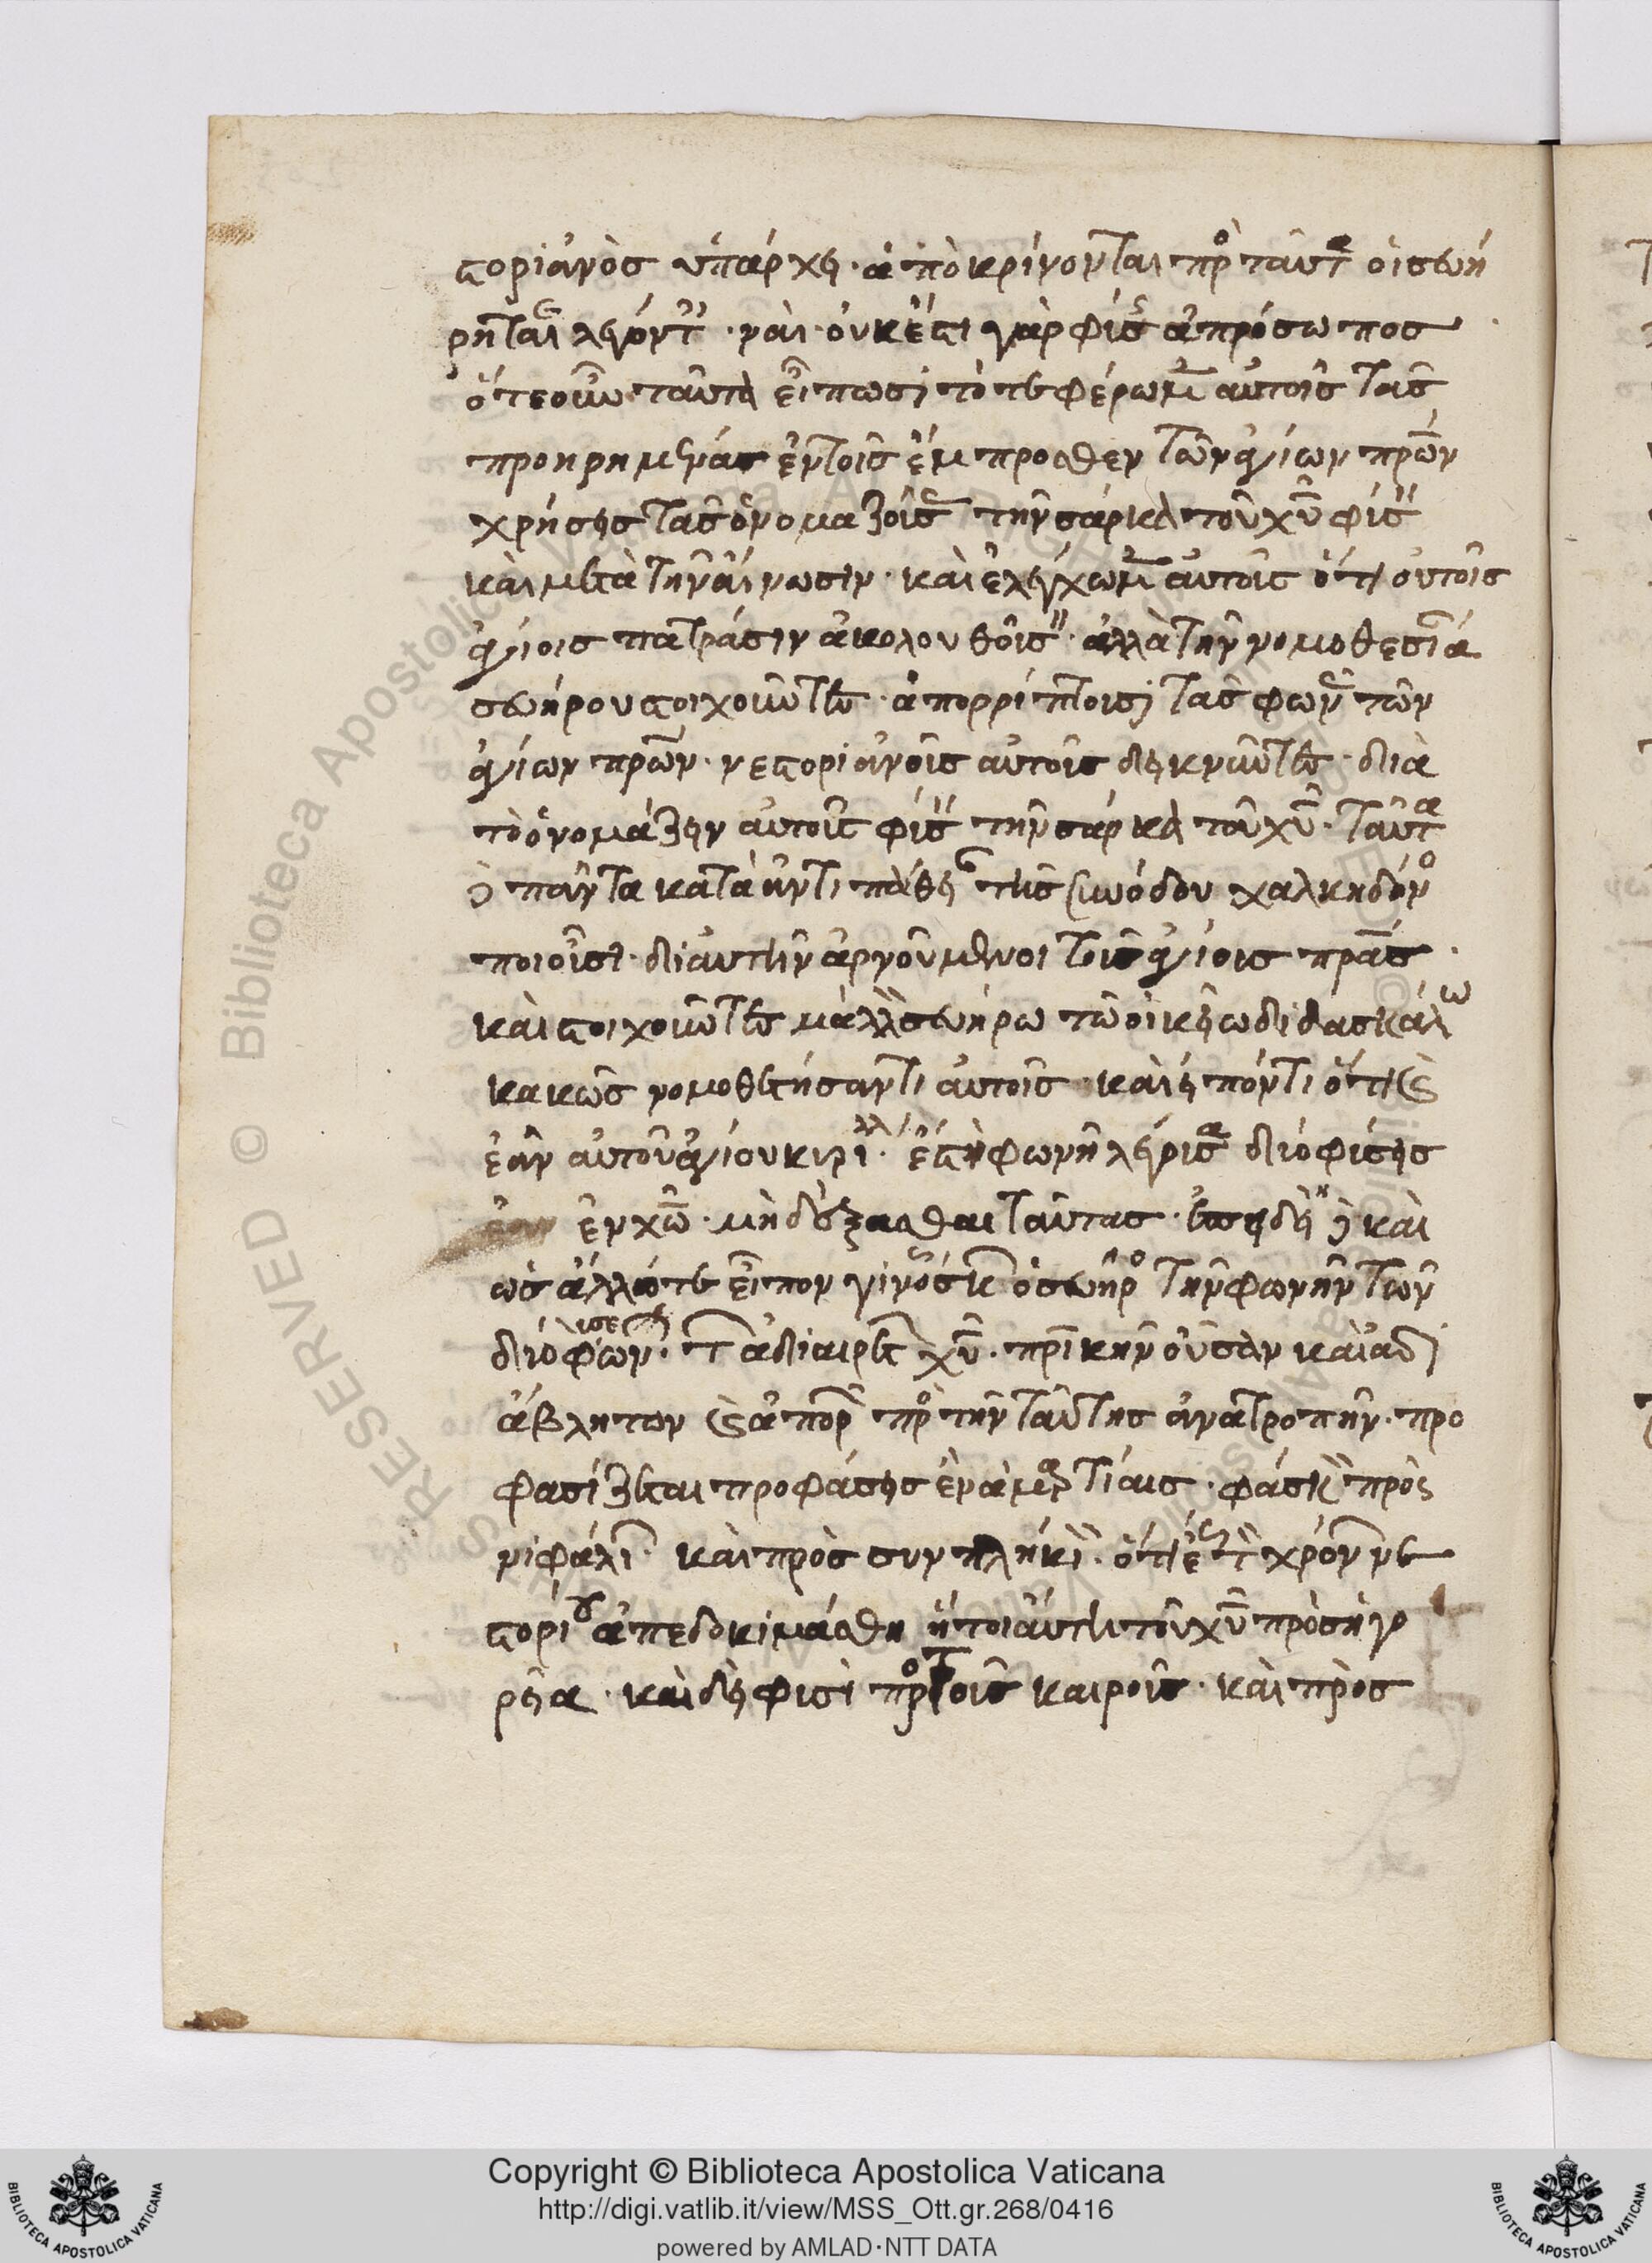 στοριανὸς ὑπάρχει· ἀποκρίνονται πρὸ ταῦτα οἱ σευη
ρῆται λέγοντ · ναὶ · οὐκ ἔστι γὰρ φύσ ἀπρόσωπος
ὅτε οὖν ταῦτα εἴπωσι τότε φέρωμ αὐτοῖς τὰς
προηρημένας ἐν τοῖς ἔμπροσθεν τῶν ἁγίων πρων
χρήσεις τὰς ὀνομαζούσ τὴν σάρκα τοῦ χυ φύσ
καὶ μετὰ τὴν ἕνωσιν · καὶ ἐλέγχωμ αὐτοὺς ὅτι οὐ τοῖς
ἁγίοις πατράσιν ἀκολουθοῦσ · ἀλλὰ τὴν νομοθεσία
σευήρου στοιχοῦντες · ἀπορρίπτουσι τὰς φων τῶν
ἁγίων πρων · νεστοριανοὺς αὐτοὺς δεικνῦντες · διὰ
τὸ ὀνομάζειν αὐτοὺς φύσ τὴν σάρκα τοῦ χυ · ταῦτα
δὲ πάντα κατὰ ἀντιπάθει τῆς συνόδου χαλκηδόνο
ποιοῦσι · δι αὐτὴν ἀρνούμενοι τοὺς ἁγίους πρας ·
καὶ στοιχοῦντες μᾶλλ σευήρω τῶ οἰκείω διδασκάλω
κακῶς νομοθετήσαντι αὐτοῖς · καὶ εἰπόντι ὅτι καὶ
ἐὰν αὐτοῦ ἁγίου κυρίλλ ἐστὶ ἡ φωνὴ λέγουσα δύο φύσεις
ἐν χω · μὴ δέξασθαι ταύτας · ἐπειδὴ δὲ καὶ
ὡς ἄλλοτε εἶπον γινώσκ ὁ σευῆρο τὴν φωνὴν τῶν
δύο φύσεων · τ ἀδιαιρετ χυ · πρικὴν οὖσαν καὶ ἀδι
άβλητον καὶ ἀπορ πρὸ τὴν ταύτης ἀνατροπήν · προ
φασίζεται προφάσεις ἐν ἁμαρτίαις · φάσκ πρὸς
νιφάλι · καὶ πρὸς συμπλήκι · ὅτι ἐ τ χρόν νε
στορίου ἀπεδοκιμάσθη ἡ τοιαύτη τοῦ χυ προσηγο
ρεία · καὶ δεῖ φισὶ πρὸ τοὺς καιροὺς · καὶ πρὸς
Copyright © Biblioteca Apostolica Vaticana
http://digi.vatlib.it/view/MSS_Ott.gr.268/0416
powered by AMLAD·NTT DATA